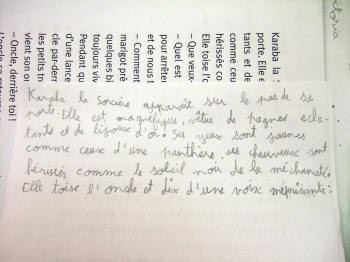 Karaba la :
porte. Elle e
tants et de
comme ceu
hérissés co
Elle toise l'c
– Que veux-
– Quel est
pour arrêter
et de nous t
– Comment
marigot pré
quelques bl
toujours viv
Pendant qu
d'une lance
cle par-der
les petits tr
vient son or
– Oncle, derrière toi !
Karaba la Sorcière apparaît sur le pas de sa
porte. Elle est magnifique, vêtue de pagnes ecla-
tants et de bijoux d'or. Ses yeux sont jaunes
comme ceux d'une panthère, ses cheuveux sont
hérissés comme le soleil noir de la méchanceté.
Elle toise l'oncle et dix d'une voix méprisante :